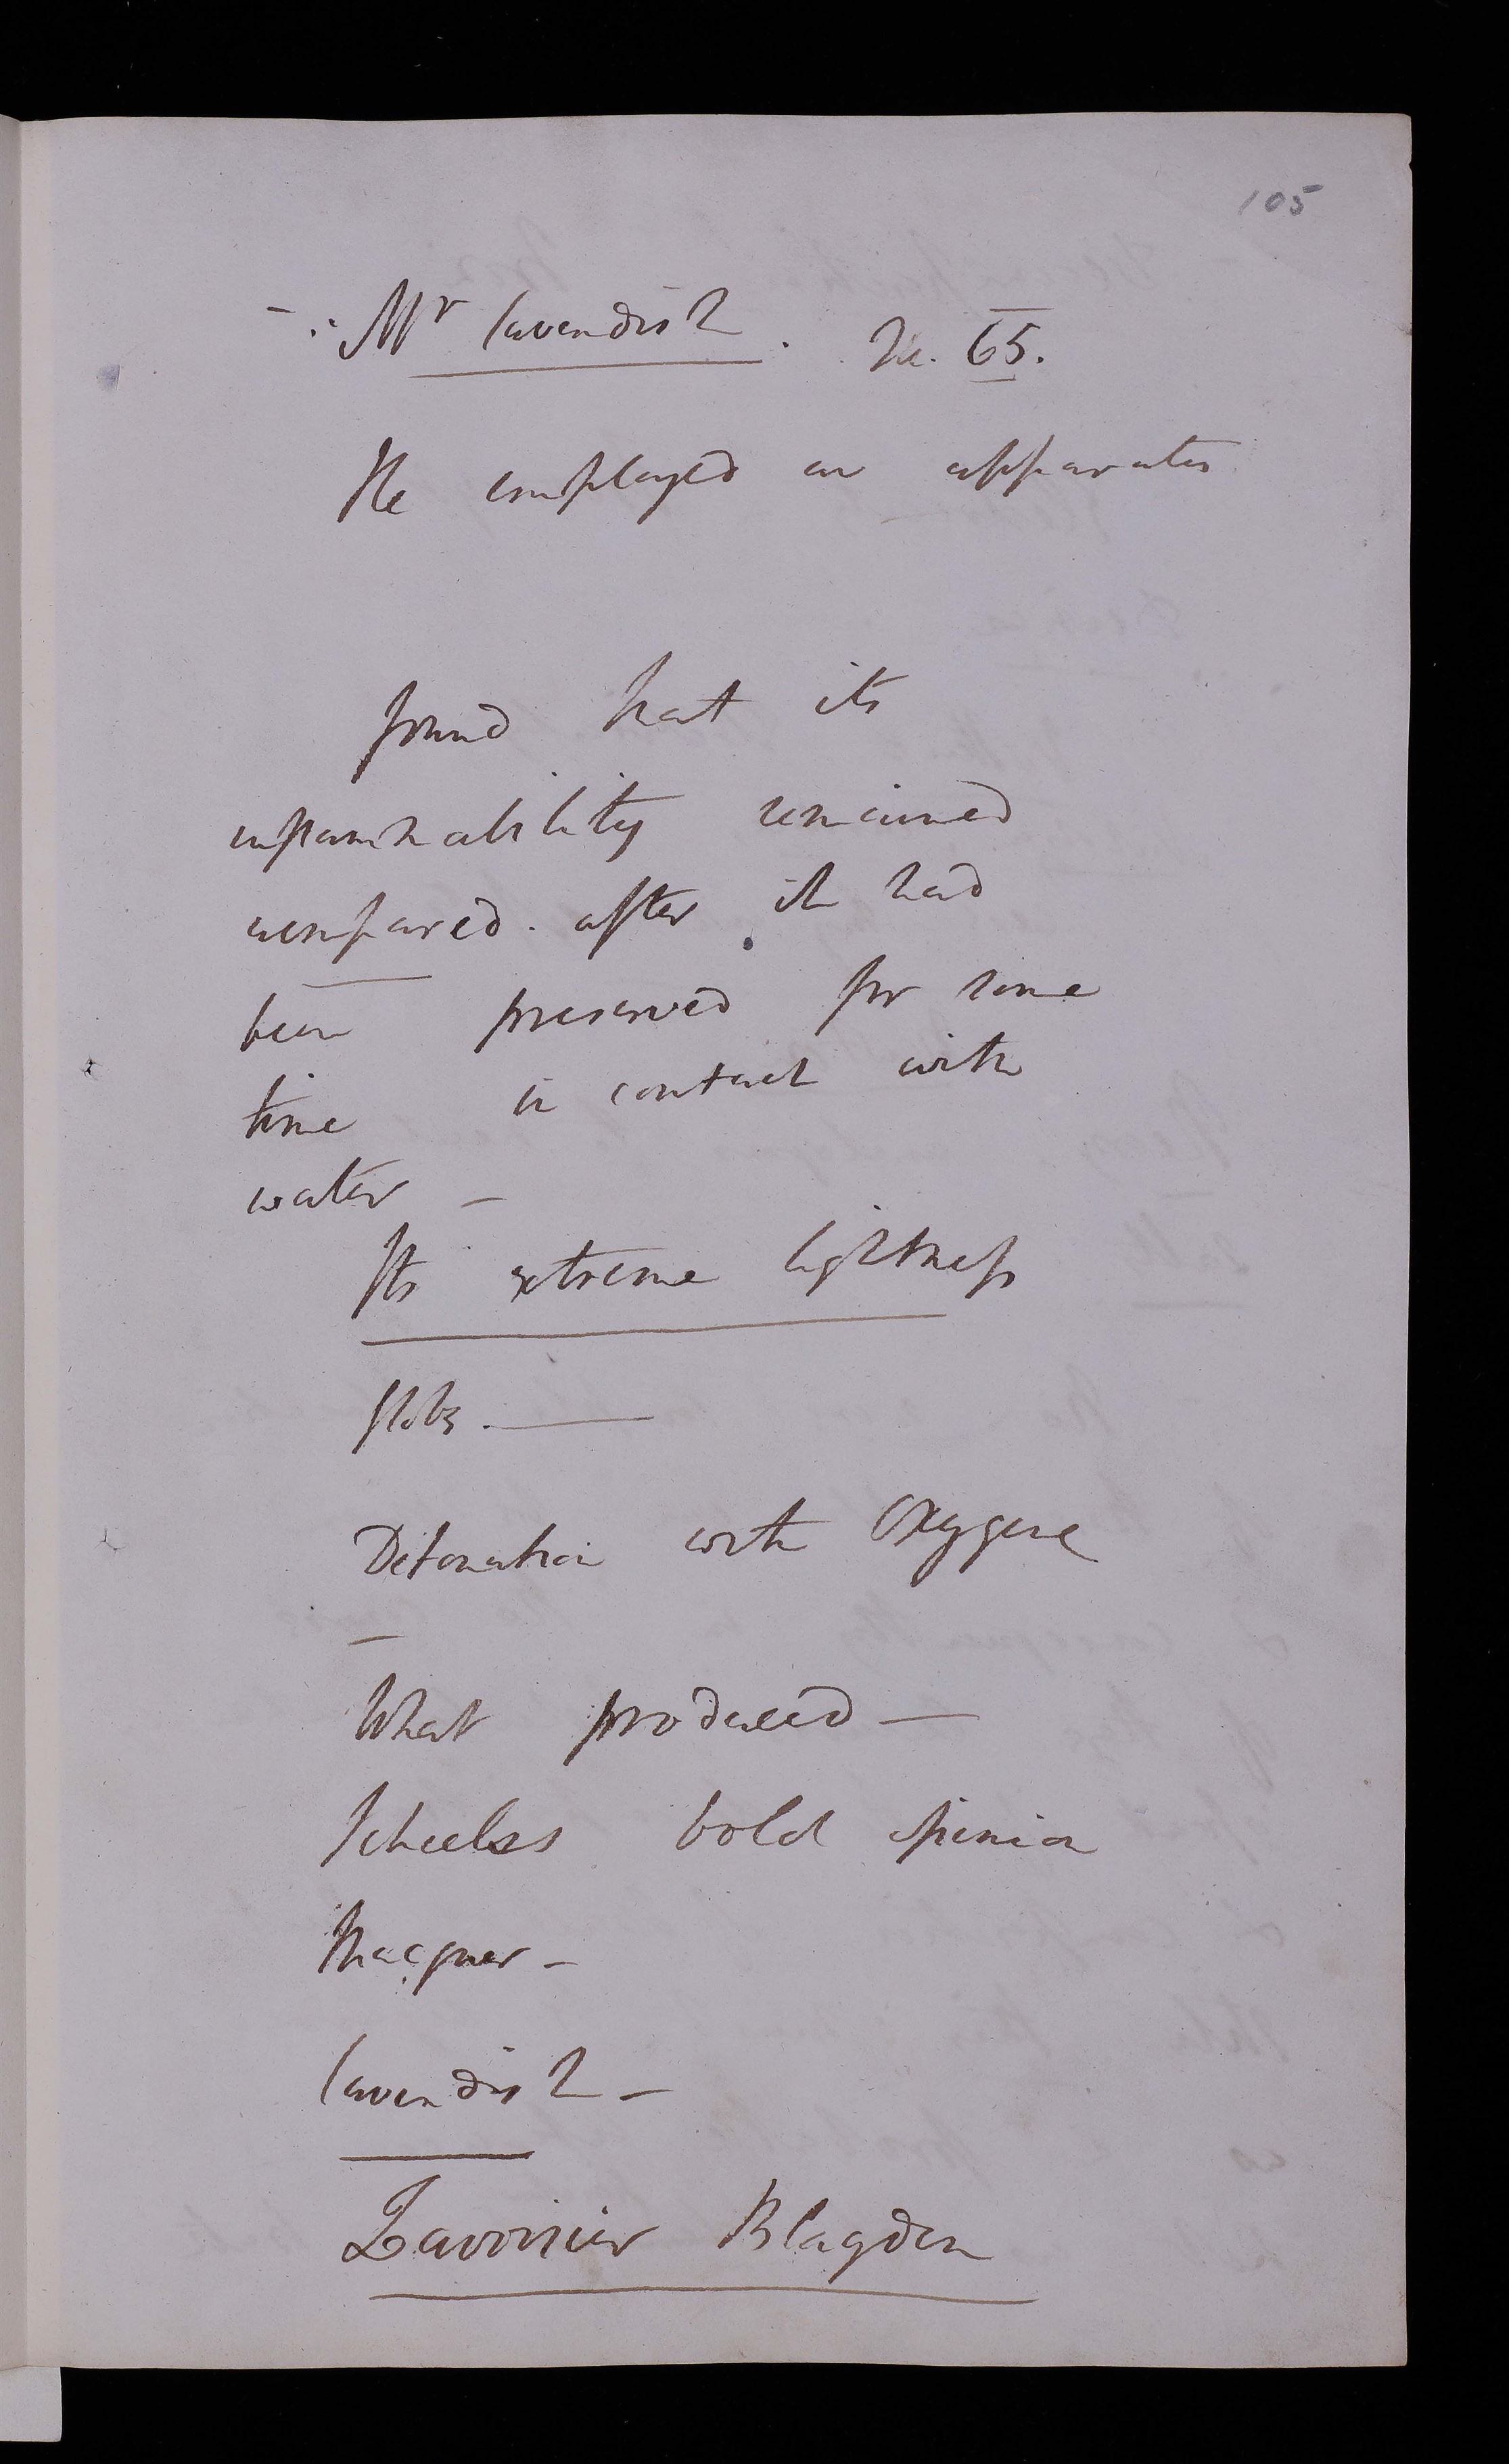 105
- Mr Cavendish. 65.
He employed an apparatus
found that its
inflammability remained
unimpared. after it had
been preserved for some
time in contact with
water -
Its extreme lightness
Detonation with Oxygene
-
What produced -
Scheeles bold opinion
Macquer -
Cavendish -
Lavoisier Blagden